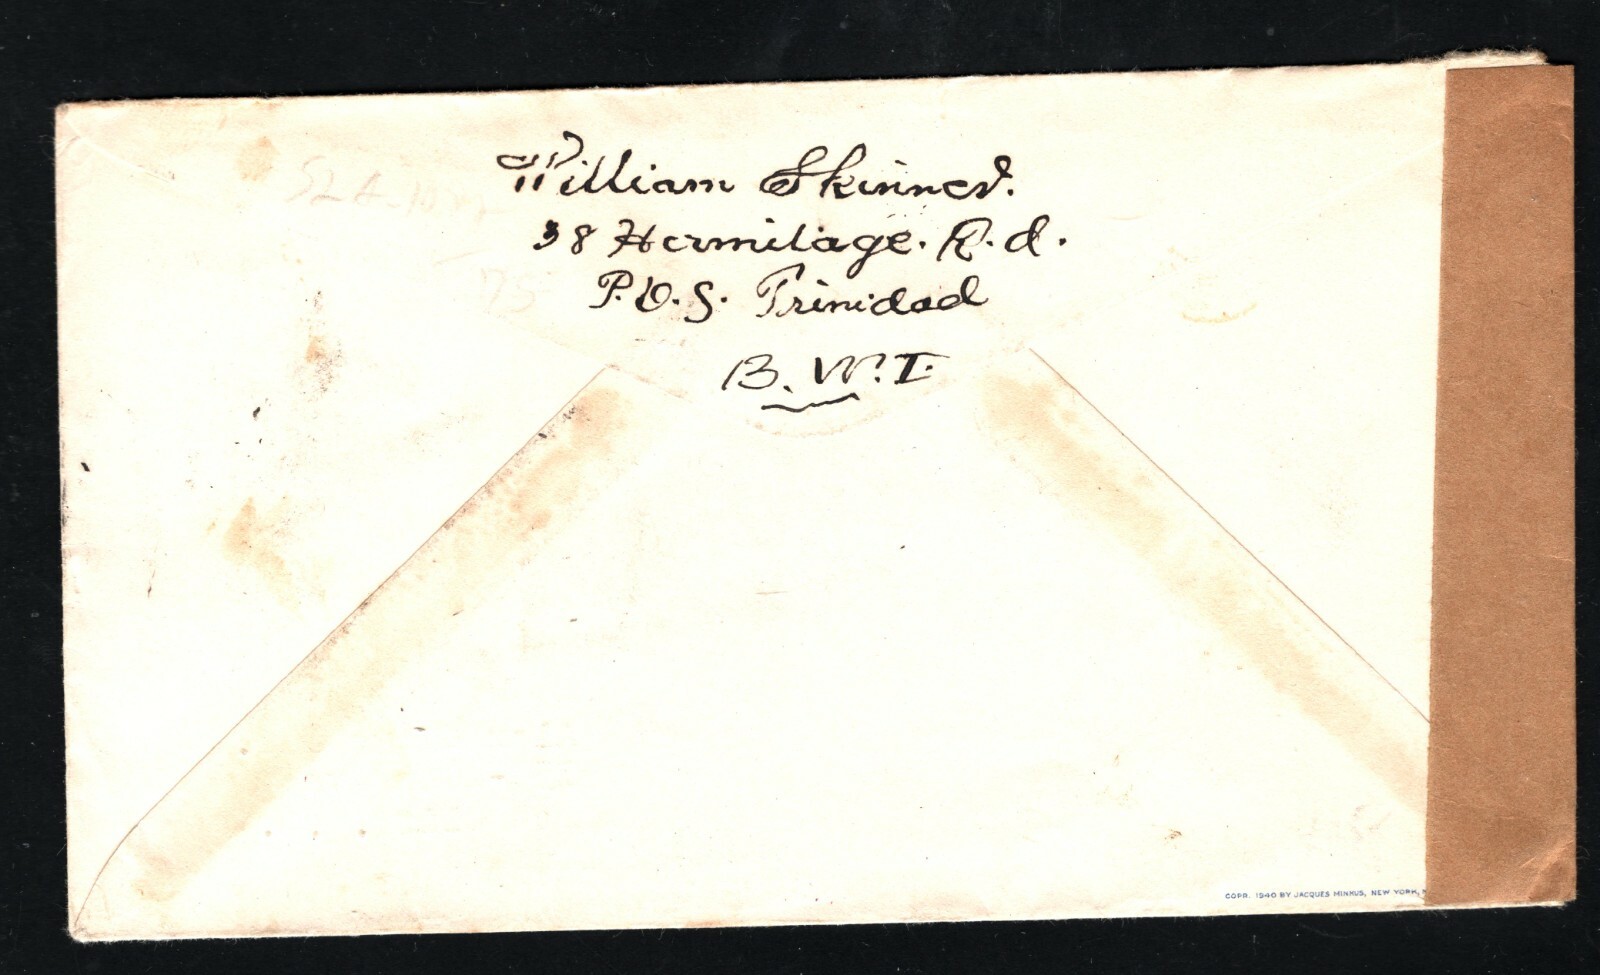 William Skinner.
38 Hermitage. R.d.
P.O.S. Trinidad
B.W.I.
75
COPR. 1940 BY JACQUES MINKUS, NEW YORK,